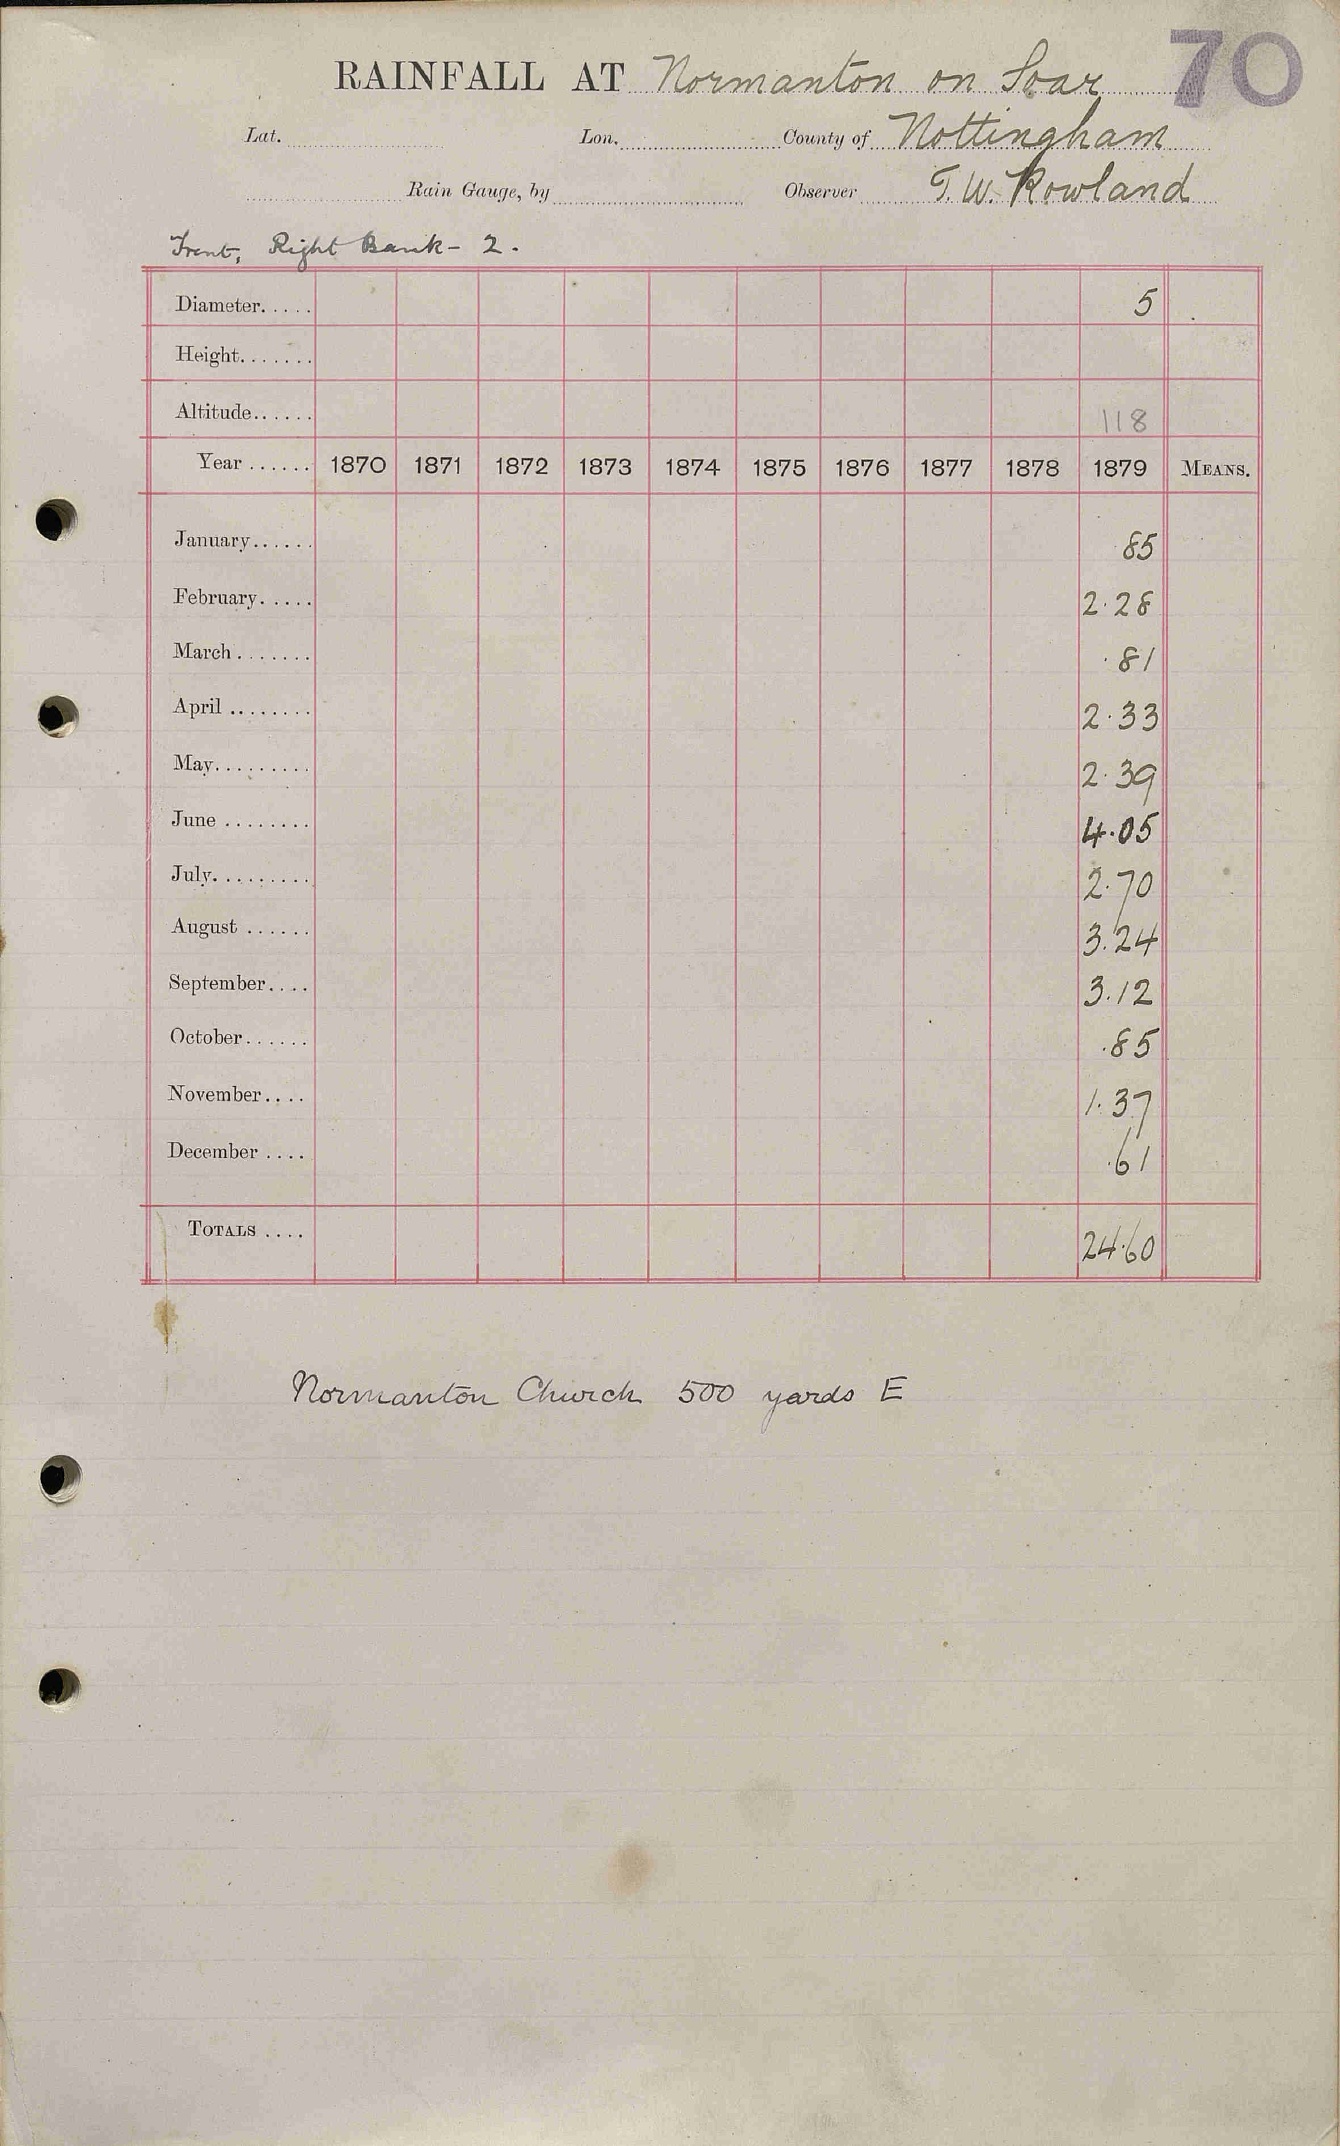 70
RAINFALL AT Normanton on Soar
Lat. Lon. County of Nottingham
Rain Gauge, by Observer T. W. Rowland
Trent, Right Bank - 2.
Diameter..... 5
Height.......
Altitude...... 118
Year ...... 1870 1871 1872 1873 1874 1875 1876 1877 1878 1879 MEANS.
January...... .85
February..... 2.28
March ....... .81
April ........ 2.33
May......... 2.39
June ........ 4.05
July......... 2.70
August ...... 3.24
September.... 3.12
October...... .85
November.... 1.37
December .... .61
TOTALS .... 24.60
Normanton Church 500 yards E